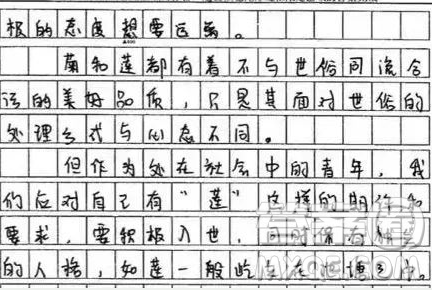 极的态度想要远离。
菊和莲都有着不与世俗同流合
污的美好品质，只是其面对世俗的
处理方式与心态不同。
但作为处在社会中的青年，我
们应对自己有“莲”这样的期许和
要求，要积极入世，同时保有
的人格，如莲一般屹立在泥塘